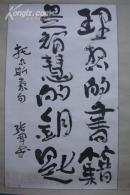 理想的书籍
是智慧的钥匙
托尔斯泰句